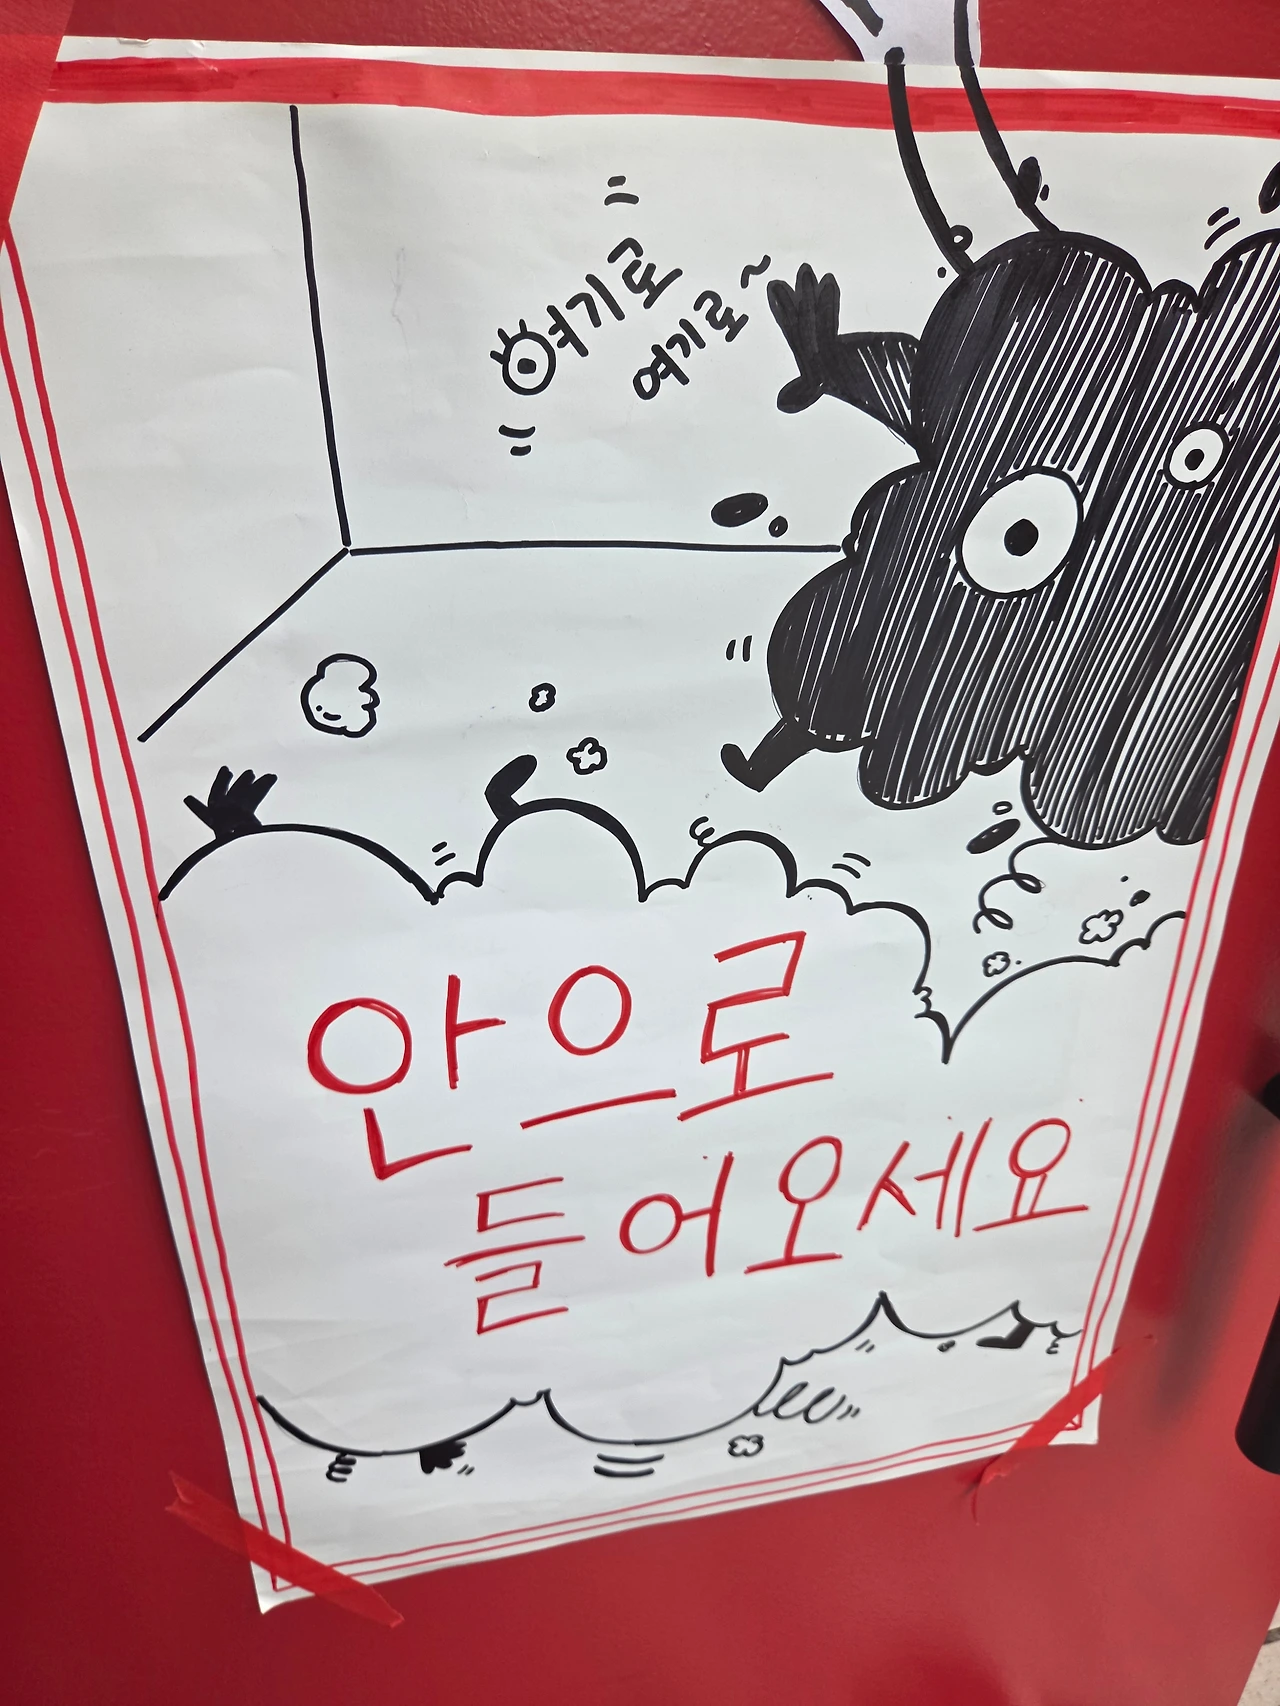 여기로
여기로~
안으로
들어오세요